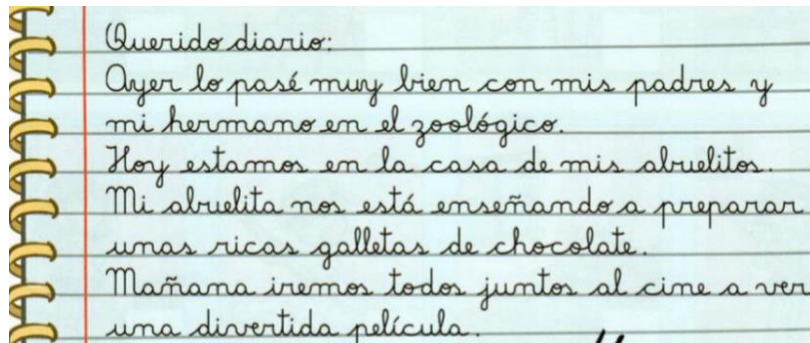 Querido diario:
Ayer lo pasé muy bien con mis padres y
mi hermano en el zoológico.
Hoy estamos en la casa de mis abuelitos.
Mi abuelita nos está enseñando a preparar
unas ricas galletas de chocolate.
Mañana iremos todos juntos al cine a ver
una divertida película.